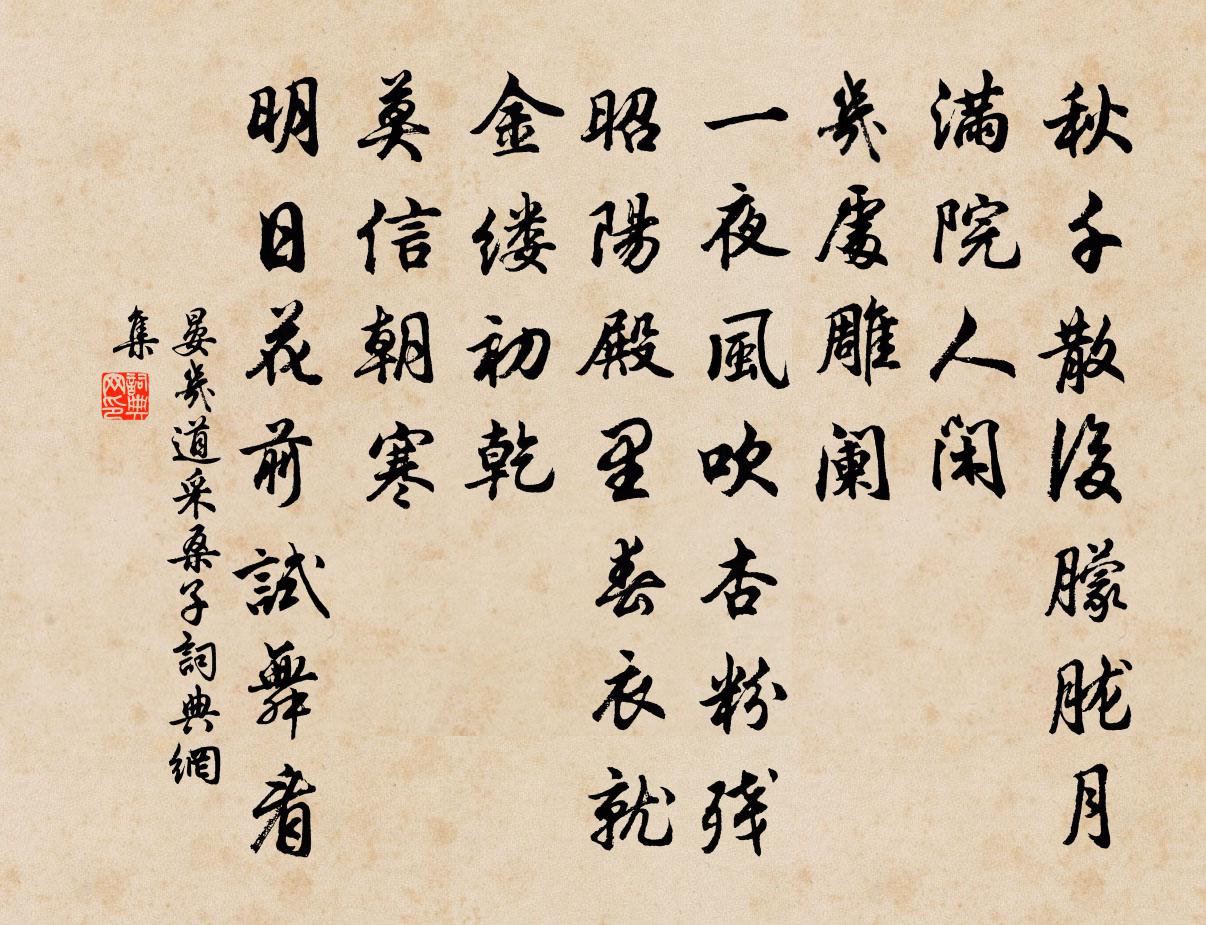 秋千散後朦胧月
滿院人闲
幾處雕阑
一夜風吹杏粉残
昭陽殿里春衣就
金缕初乾
莫信朝寒
明日花前試舞看
晏幾道采桑子詞典網
集
詞典
网印